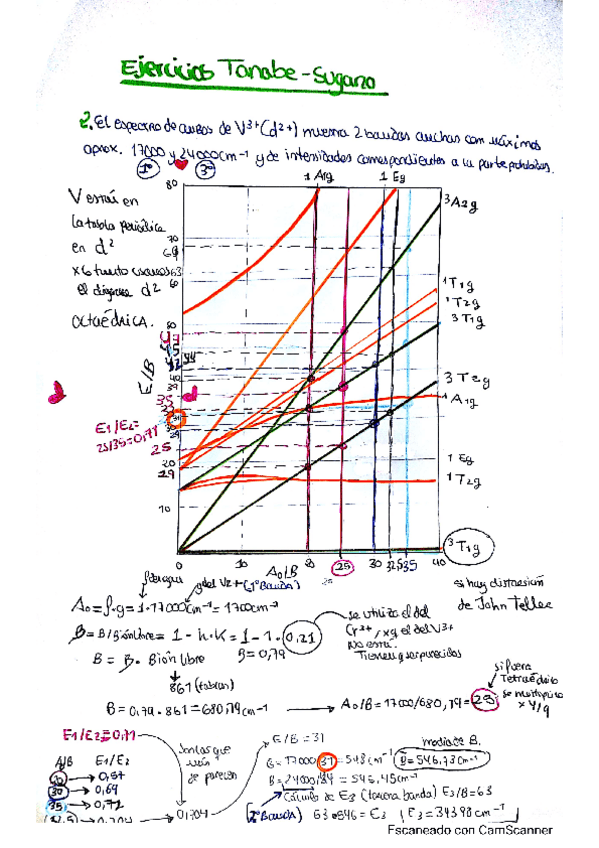 Ejercicios Tanabe-Sugano
2. El espectro de aquos de V3+ (d2+) muestra 2 bandas anchas con máximos
aprox. 17000 y 24000cm-1 y de intensidades correspondientes a la parte prohibidas.
1º 3º
1 A1g 1 Eg
V está en
la tabla periódica
en d2
el diagrama d2
octaédrica.
80
70
69
63
60
50
47
45
44
42
40
39
35
31
30
29
25
20
10
E/B
E1/E2=
25/35=0,71
3A2g
1T1g
1T2g
3T1g
3T2g
1A1g
1Eg
1T2g
3T1g
0 10 20 25 30 32,5 35 40
Δo/B
Δo = f·g = 1·17000cm-1 = 1700cm-1
si hay distorsión
de John Teller
B = B/Bión libre = 1 - h·K = 1 - 1·0,21
B=0,79
se utiliza el del
Cr3+, xq el del V3+
no está.
Tienen q ser parecidos
B = B· Bión libre
861 (tablas)
B = 0,79·861 = 680,19cm-1
Δo/B = 17000/680,19 = 25
si fuera
Tetraédrico
se multiplica
x 4/9
E1/E2=0,71
Δ/B E1/E2
20 0,57
30 0,69
35 0,72
32,5 0,704
0,704
Son las que
más
se parecen
E/B = 31
B = 17000/31 = 548 cm-1
B = 24000/44 = 545,45cm-1
media de B.
B = 546,73cm-1
Cálculo de E3 (tercera banda) E3/B=63
2ºBanda 63·546 = E3 E3 = 34398 cm-1
Escaneado con CamScanner